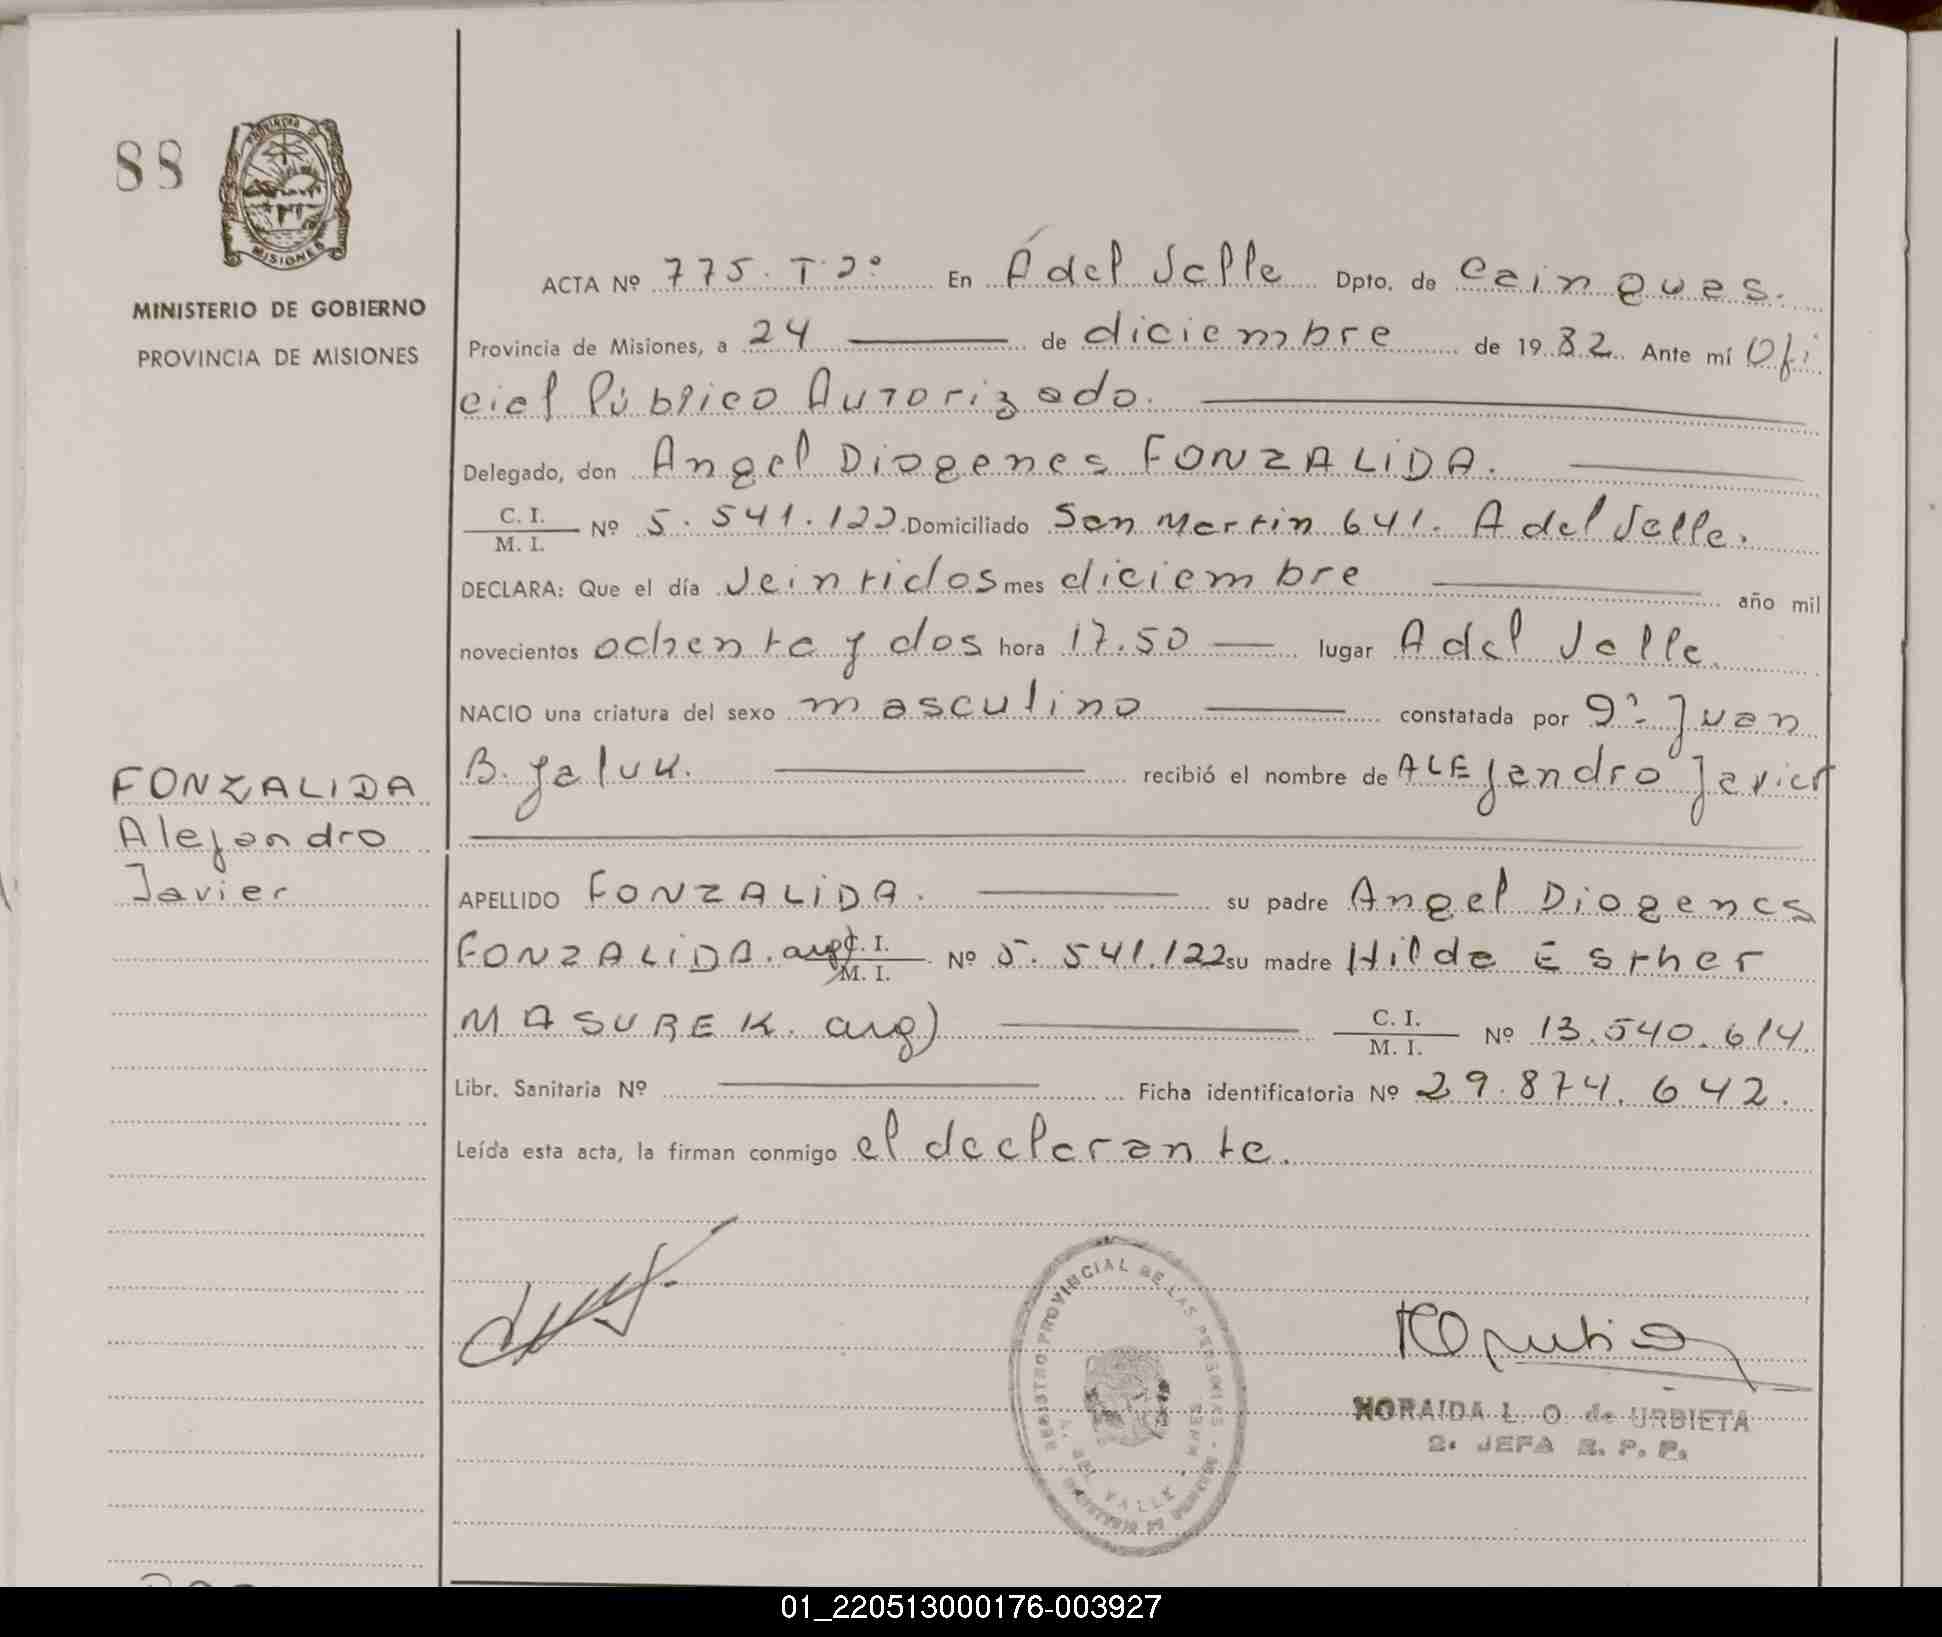 88
PROVINCIA DE
MISIONES
MINISTERIO DE GOBIERNO
PROVINCIA DE MISIONES
ACTA Nº 775. T 2º En A del Valle Dpto. de Cainguas.
Provincia de Misiones, a 24 de diciembre de 1982. Ante mí Ofi
cial Público Autorizado.
Delegado, don Angel Diogenes FONZALIDA.
C. I.
M. I. Nº 5.541.122. Domiciliado San Martin 641. A del Valle.
DECLARA: Que el día veintidos mes diciembre año mil
novecientos ochenta y dos hora 17.50 lugar A del Valle.
NACIO una criatura del sexo masculino constatada por Dr. Juan
B. Jaluk. recibió el nombre de ALEjandro Javier
FONZALIDA
Alejandro
Javier
APELLIDO FONZALIDA. su padre Angel Diogenes
FONZALIDA. arg) C. I.
M. I. Nº 5.541.122 su madre Hilda Esther
MASUREK. arg) C. I.
M. I. Nº 13.540.614.
Libr. Sanitaria Nº Ficha identificatoria Nº 29.874.642.
Leída esta acta, la firman conmigo el declarante.
REGISTRO PROVINCIAL DE LAS PERSONAS
DEL VALLE
NORAIDA L. O. de URBIETA
2. JEFA R. P. P.
01_220513000176-003927